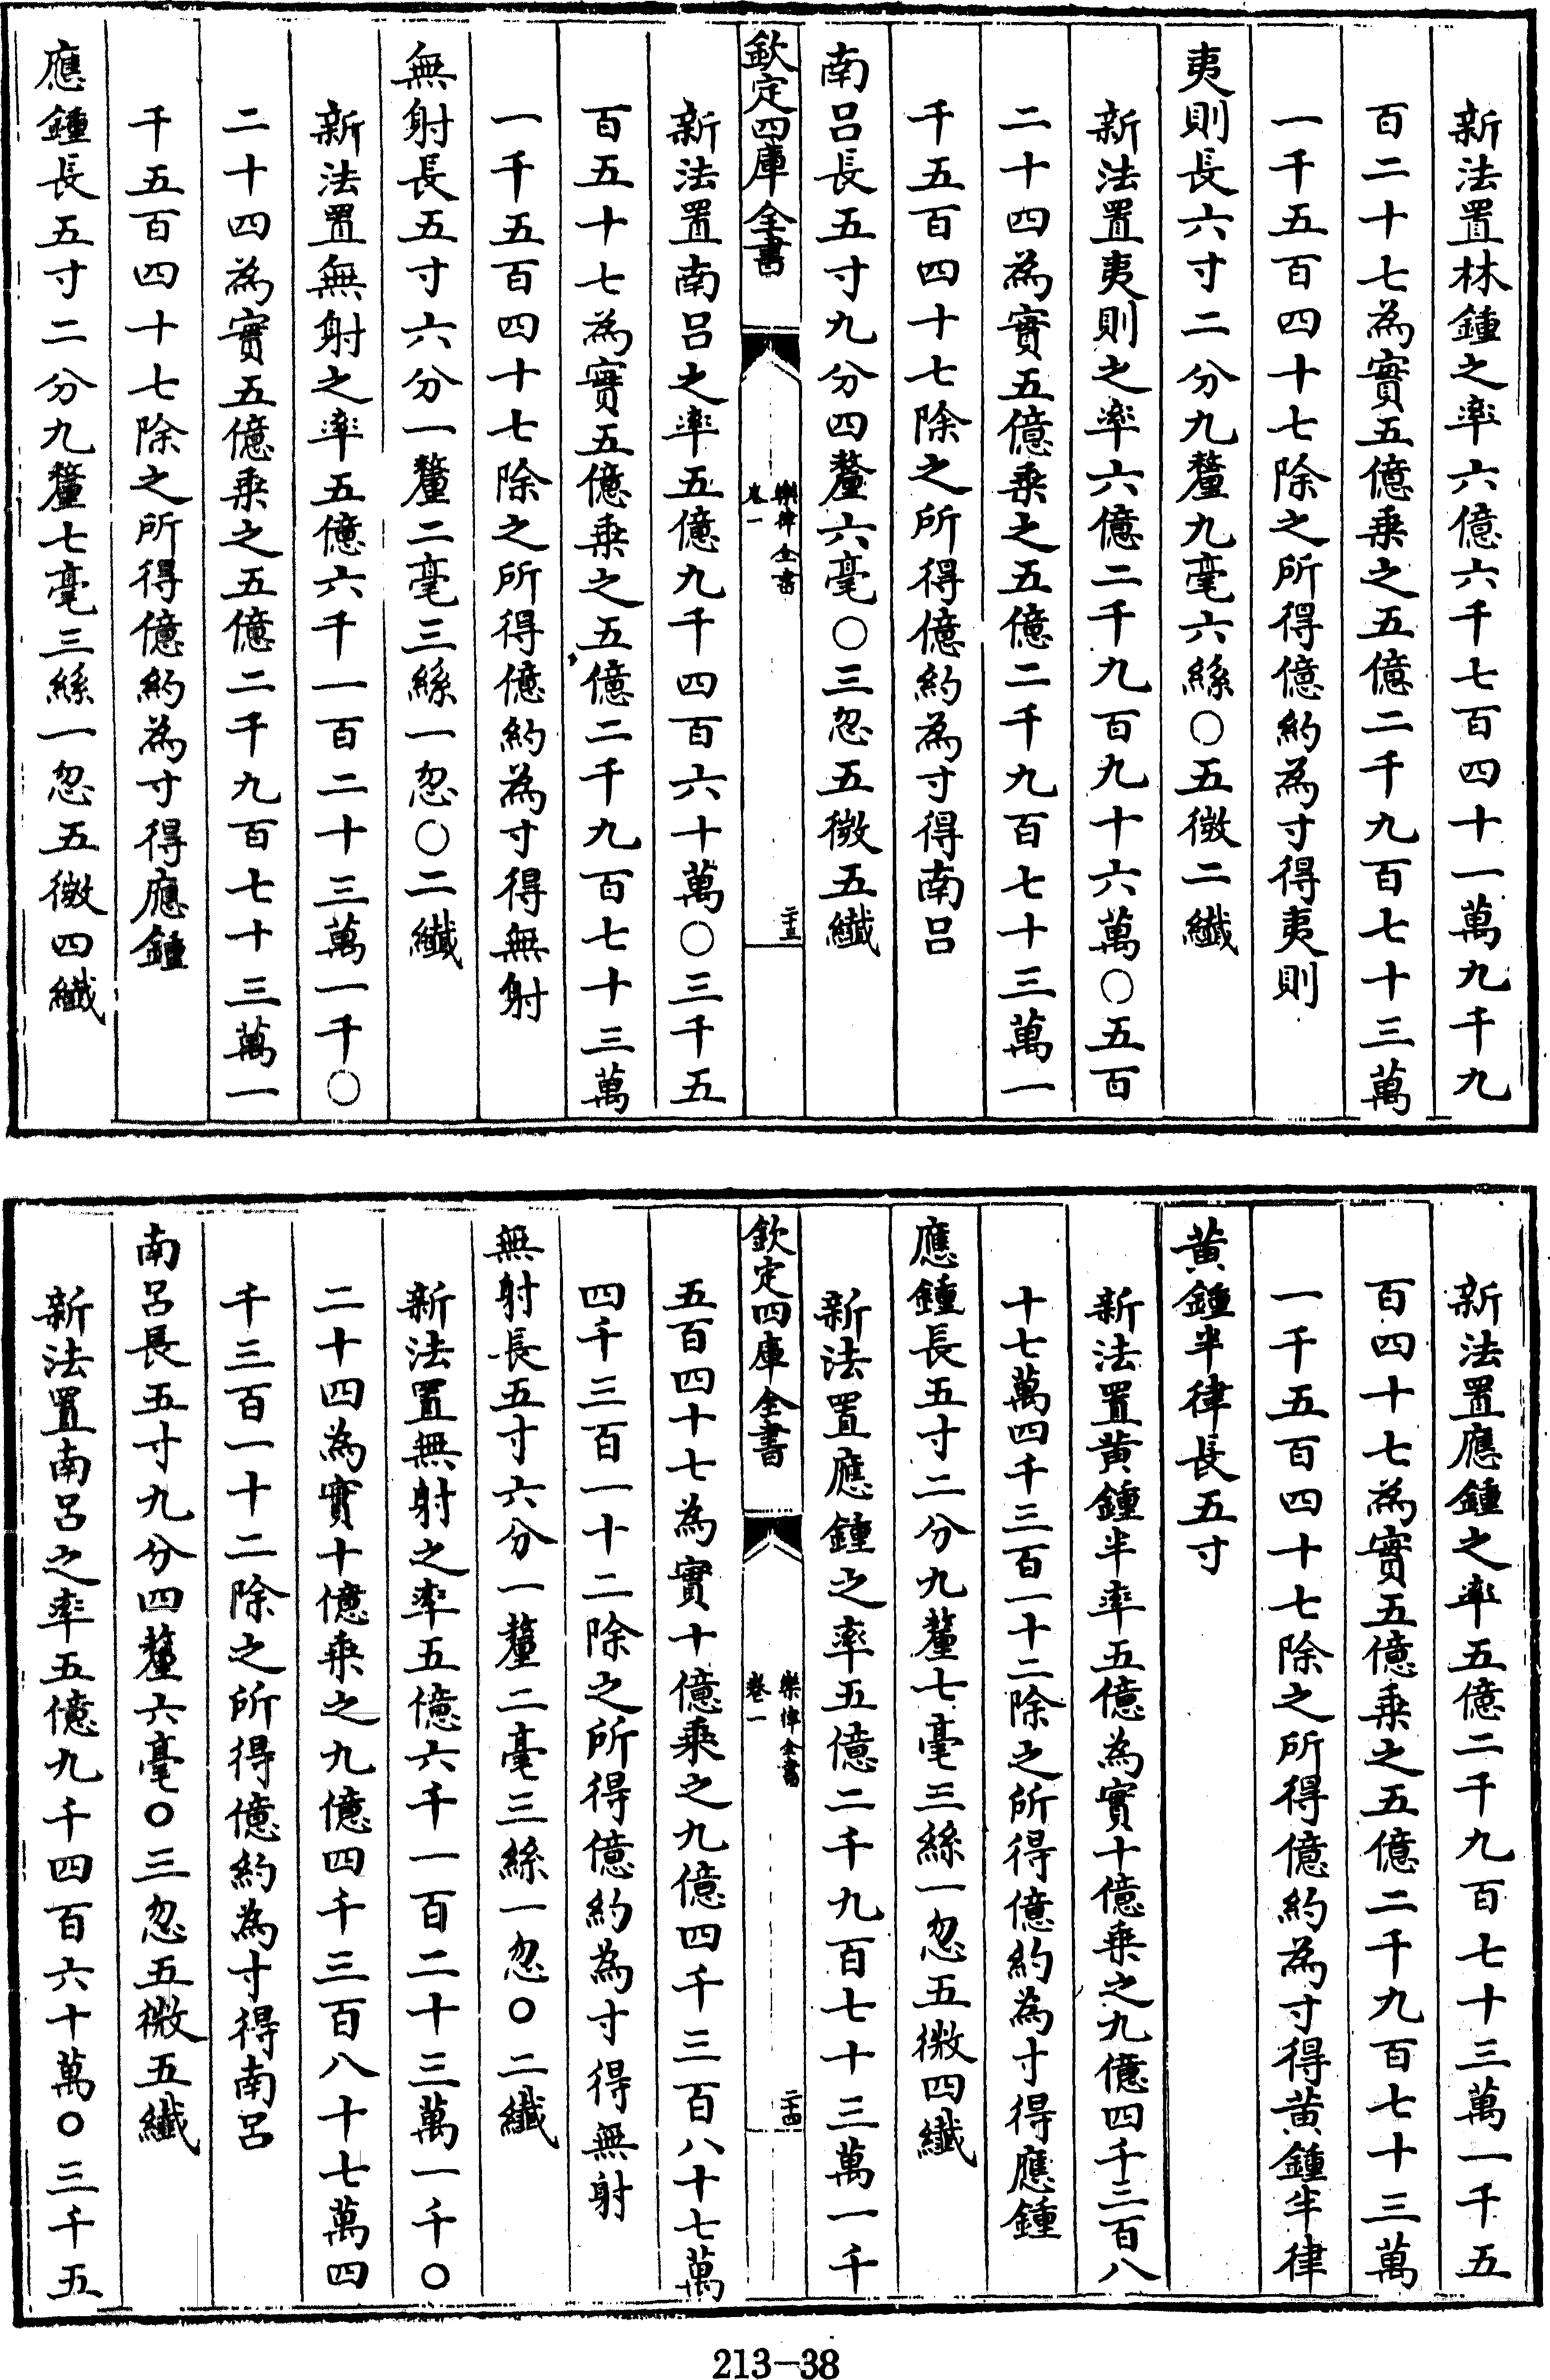 新法置林鍾之率六億六千七百四十一萬九千九
百二十七為實五億乗之五億二千九百七十三萬
一千五百四十七除之所得億約為寸得夷則
夷則長六寸二分九釐九毫六絲○五微二纖
新法置夷則之率六億二千九百九十六萬○五百
二十四為實五億乗之五億二千九百七十三萬一
千五百四十七除之所得億約為寸得南呂
南呂長五寸九分四釐六毫○三忽五微五纖
欽定四庫全書
樂律全書
卷一
二十三
新法置南呂之率五億九千四百六十萬○三千五
百五十七為實五億乗之五億二千九百七十三萬
一千五百四十七除之所得億約為寸得無射
無射長五寸六分一釐二毫三絲一忽○二纖
新法置無射之率五億六千一百二十三萬一千○
二十四為實五億乗之五億二千九百七十三萬一
千五百四十七除之所得億約為寸得應鍾
應鍾長五寸二分九釐七毫三絲一忽五微四纖
新法置應鍾之率五億二千九百七十三萬一千五
百四十七為實五億乗之五億二千九百七十三萬
一千五百四十七除之所得億約為寸得黄鍾半律
黄鍾半律長五寸
新法置黄鍾半率五億為實十億乗之九億四千三百八
十七萬四千三百一十二除之所得億約為寸得應鍾
應鍾長五寸二分九釐七毫三絲一忽五微四纖
新法置應鍾之率五億二千九百七十三萬一千
欽定四庫全書
樂律全書
卷一
二十四
五百四十七為實十億乗之九億四千三百八十七萬
四千三百一十二除之所得億約為寸得無射
無射長五寸六分一釐二毫三絲一忽○二纖
新法置無射之率五億六千一百二十三萬一千○
二十四為實十億乗之九億四千三百八十七萬四
千三百一十二除之所得億約為寸得南呂
南呂長五寸九分四釐六毫○三忽五微五纖
新法置南呂之率五億九千四百六十萬○三千五
213-38